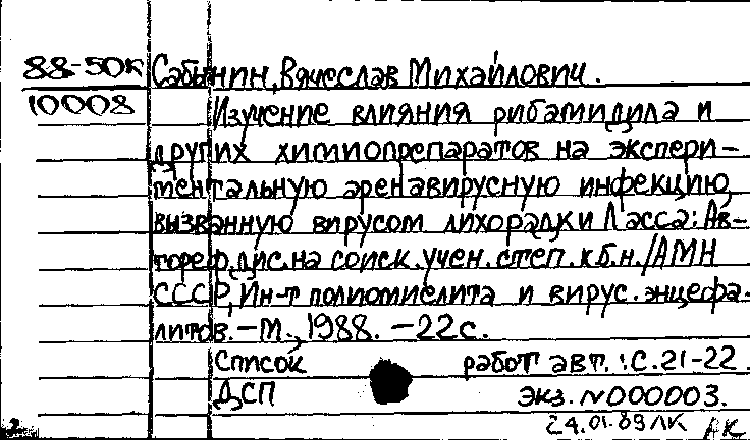 88-50к Сабынин, Вячеслав Михайлович.
10008 Изучение влияния рибамидила и
других химиопрепаратов на экспери-
ментальную аренавирусную инфекцию,
вызванную вирусом лихорадки Ласса: Ав-
тореф. дис. на соиск. учен. степ. к.б.н./АМН
СССР, Ин-т полиомиелита и вирус. энцефа-
литов. – М., 1988. – 22 с.
Список работ авт.: С. 21-22.
ДСП экз. №000003.
24.01.89 ЛК АК